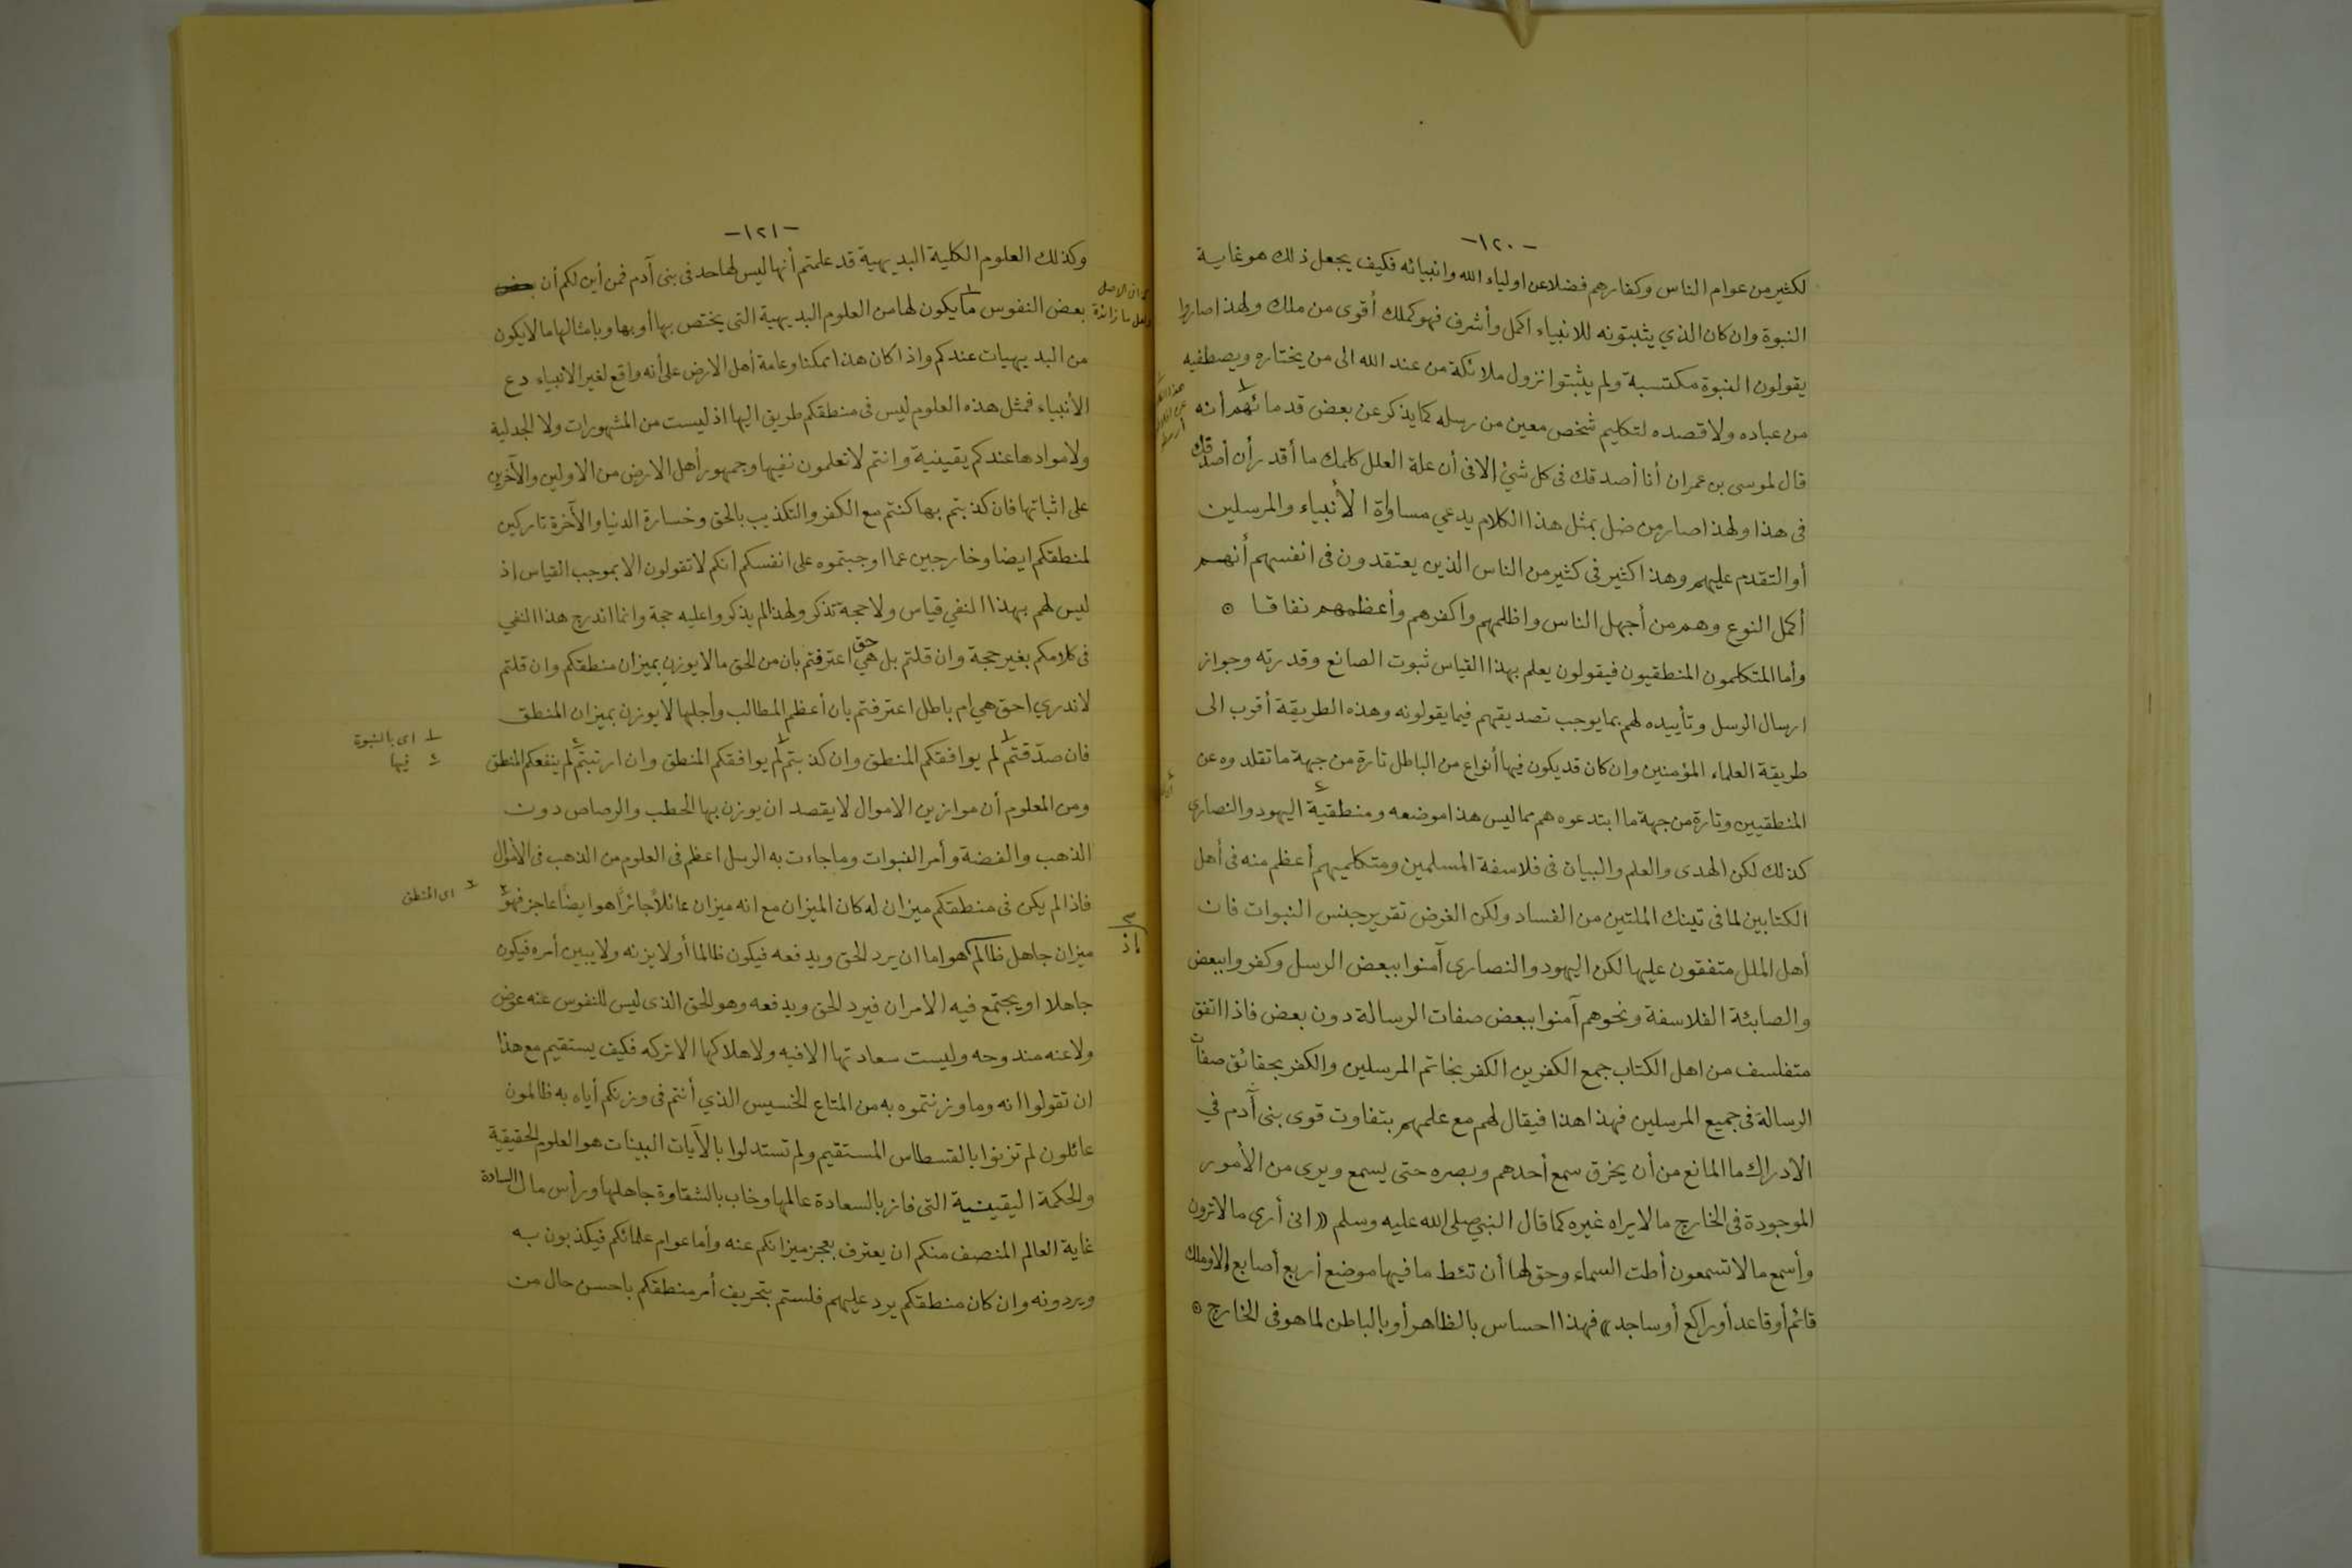 -١٢٠-
لكثير من عوام الناس وكفارهم فضلا عن اولياء الله وانبيائه فكيف يجعل ذلك هو غاية
النبوة وان كان الذي يثبتونه للانبياء اكمل وأشرف فهو كملك أقوى من ملك ولهذا صاروا
يقولون النبوة مكتسبة ولم يثبتوا نزول ملائكة من عند الله الى من يختاره ويصطفيه
من عباده ولا قصده لتكليم شخص معين من رسله كما يذكر عن بعض قدمائهم١ أنه
قال لموسى بن عمران أنا أصدقك فى كل شئ إلا فى أن علة العلل كلمك ما أقدر أن أصدقك
فى هذا ولهذا صار من ضل بمثل هذا الكلام يدعي مساواة الأنبياء والمرسلين
أو التقدم عليهم وهذا كثير فى كثير من الناس الذين يعتقدون فى انفسهم أنهم
أكمل النوع وهم من أجهل الناس واظلمهم واكفرهم وأعظمهم نفاقا ⊙
وأما المتكلمون المنطقيون فيقولون يعلم بهذا القياس ثبوت الصانع وقدرته وجواز
ارسال الرسل وتأييده لهم بما يوجب تصديقهم فيما يقولونه وهذه الطريقة أقرب الى
طريقة العلماء المؤمنين وان كان قد يكون فيها أنواع من الباطل تارة من جهة ما تقلدوه عن
المنطقيين وتارة من جهة ما ابتدعوه هم مما ليس هذا موضعه ومنطقية٢ اليهود والنصارى
كذلك لكن الهدى والعلم والبيان فى فلاسفة المسلمين ومتكلميهم أعظم منه فى أهل
الكتابين لما فى تينك الملتين من الفساد ولكن الغرض تقرير جنس النبوات فان
أهل الملل متفقون عليها لكن اليهود والنصارى آمنوا ببعض الرسل وكفروا ببعض
والصابئة الفلاسفة ونحوهم آمنوا ببعض صفات الرسالة دون بعض فاذا اتفق
متفلسف من اهل الكتاب جمع الكفرين الكفر بخاتم المرسلين والكفر بحقائق صفات
الرسالة فى جميع المرسلين فهذا هذا فيقال لهم مع علمهم بتفاوت قوى بنى آدم في
الادراك ما المانع من أن يخرق سمع أحدهم وبصره حتى يسمع ويرى من الأمور
الموجودة فى الخارج ما لا يراه غيره كما قال النبي صلى الله عليه وسلم ((انى أرى ما لا ترون
وأسمع ما لا تسمعون أطت السماء وحق لها أن تئط ما فيها موضع أربع أصابع إلا وملك
قائم أو قاعد أو راكع أو ساجد)) فهذا احساس بالظاهر أو بالباطن لما هو فى الخارج ⊙
-١٢١-
وكذلك العلوم الكلية البديهية قد علمتم أنها ليس لها حد فى بنى آدم فمن أين لكم أن
بعض النفوس ما١ يكون لها من العلوم البديهية التى يختص بها أو بها وبامثالها ما لا يكون
من البديهيات عندكم واذا كان هذا ممكنا وعامة أهل الارض على أنه واقع لغير الانبياء دع
الأنبياء فمثل هذه العلوم ليس فى منطقكم طريق اليها اذ ليست من المشهورات ولا الجدلية
ولا موادها عندكم يقينية وانتم لا تعلمون نفيها وجمهور أهل الارض من الاولين والآخرين
على اثباتها فان كذبتم بها كنتم مع الكفر والتكذيب بالحق وخسارة الدنيا والآخرة تاركين
لمنطقكم ايضا وخارجين عما اوجبتموه على انفسكم انكم لا تقولون الا بموجب القياس اذ
ليس لهم بهذا النفي قياس ولا حجة تذكر ولهذا لم يذكروا عليه حجة وانما اندرج هذا النفي
فى كلامكم بغير حجة وان قلتم بل هي حق اعترفتم بان من الحق ما لا يوزن بميزان منطقكم وان قلتم
لا ندري احق هي ام باطل اعترفتم بان أعظم المطالب وأجلها لا يوزن بميزان المنطق
فان صدّقتم١ لم يوافقكم المنطق وان كذبتم١ لم يوافقكم المنطق وان ارتبتم٢ لم ينفعكم المنطق
ومن المعلوم أن موازين الاموال لا يقصد ان يوزن بها الحطب والرصاص دون
الذهب والفضة وأمر النبوات وما جاءت به الرسل اعظم فى العلوم من الذهب فى الأموال
فاذا لم يكن فى منطقكم ميزان له كان الميزان مع انه ميزان عائلاً جائراً هو ايضاً عاجز فهو٣
ميزان جاهل ظالم هو اما ان يرد الحق ويدفعه فيكون ظالما أو لا يزنه ولا يبين أمره فيكون
جاهلا او يجتمع فيه الامران فيرد الحق ويدفعه وهو الحق الذى ليس للنفوس عنه عوض
ولا عنه مندوحه وليست سعادتها الا فيه ولا هلاكها الا تركه فكيف يستقيم مع هذا
ان تقولوا انه وما وزنتموه به من المتاع الخسيس الذي أنتم فى وزنكم أياه به ظالمون
عائلون لم تزنوا بالقسطاس المستقيم ولم تستدلوا بالآيات البينات هو العلوم الحقيقية
والحكمة اليقينية التى فاز بالسعادة عالمها وخاب بالشقاوة جاهلها ورأس مال السادة
غاية العالم المنصف منكم ان يعترف بعجز ميزانكم عنه وأما عوام علمائكم فيكذبون به
ويردونه وان كان منطقكم يرد عليهم فلستم بتحريف أمر منطقكم باحسن حال من
ولعل ما زائدة
اذ
١ اى بالنبوة
٢ فيها
٣ اى المنطق